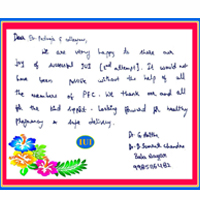 Dear Dr. & colleagues,
We are very happy to share our
joy of successful IUI [2nd attempt]. It would not
have been possible without the help of all
the members of PFC. We thank one and all
for the kind support. Looking forward for healthy
pregnancy & safe delivery.
Dr. G.
Dr. D. Sumanth Chandra
IUI